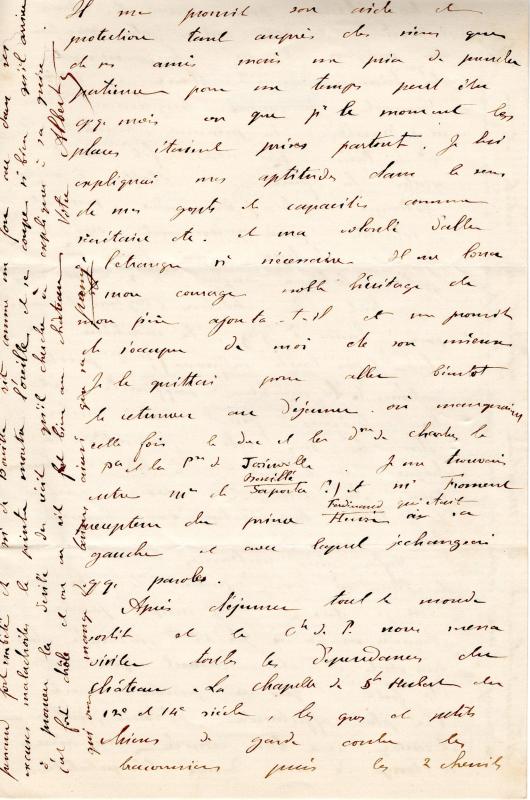 Il me promit son aide et
protection tant auprès des siens que
de ses amis mais me pria de prendre
patience pour un temps peut être
qq. mois vu que pr le moment les
places étaient prises partout. Je lui
expliquai mes aptitudes dans le sens
de mes goûts et capacités comme
secrétaire etc. et ma volonté d'aller
à l'étranger si nécessaire. Il me loua
mon courage noble héritage de
mon père ajouta-t-il et me promit
de s'occuper de moi de son mieux
Je le quittai pour aller bientôt
le retrouver au déjeuner où manquaient
cette fois le duc et les d. de chartres le
pce et la pss de Joinville. Je me trouvais
entre mr de Saporta ?) et mr Froment
Noseillé
Ferdinand qui était
précepteur du prince Henri à sa
gauche et avec lequel j'échangeai
qq. paroles.
Après déjeuner tout le monde
sortit et le Cte de P. nous mena
visiter toutes les dépendances du
château. La chapelle de St Hubert du
12e et 14e siècle, les gros et petits
chiens de garde contre les
braconniers puis les 2 chenils
et mr de Bouillé rit comme un fou
maladroites la pointe monta l'oreille et se coupe si bien qu'il
à promener la du récit qu'il cherche à expliquer à sa
fort drôle et on en rit fort bien au château. Votre Albert